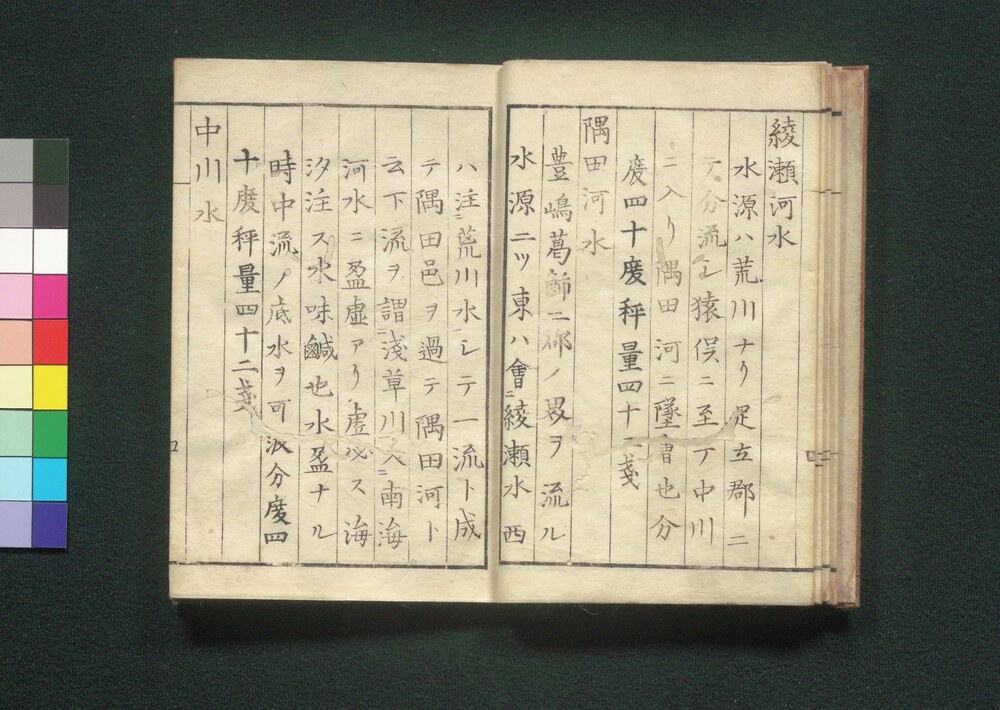 綾瀬河水
水源ハ荒川ナリ足立郡ニ
テ分流シ猿俣ニ至テ中川
ニ入リ隅田河ニ墜會也分
度四十度秤量四十二戔
隅田河水
豊嶋葛飾二郡ノ界ヲ流ル
水源二ツ東ハ會ニ綾瀬水西
ハ注ニ荒川水シテ一流ト成
テ隅田邑ヲ過テ隅田河ト
云下流ヲ謂ニ淺草川入ニ南海
河水ニ盈虚アリ虚必ス海
汐注ス水味鹹也水盈ナル
時中流ノ底水ヲ可汲分度四
十度秤量四十二戔
中川水